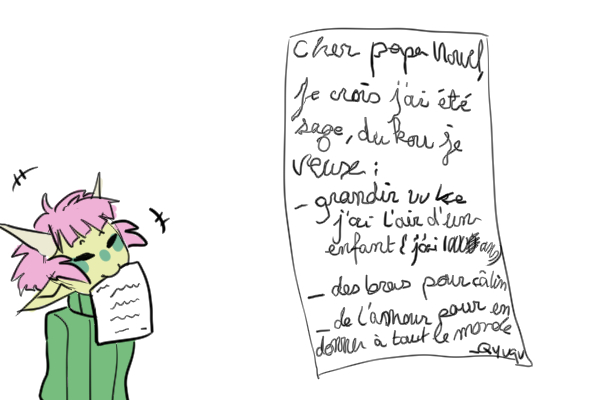 Cher papa Nouel,
Je crois j'ai été
sage, du kou je
veuse :
- grandir vu ke
j'ai l'air d'un
enfant (j'ai 1000 ans)
- des bras pour câlin
- de l'amour pour en
donner à tout le monde